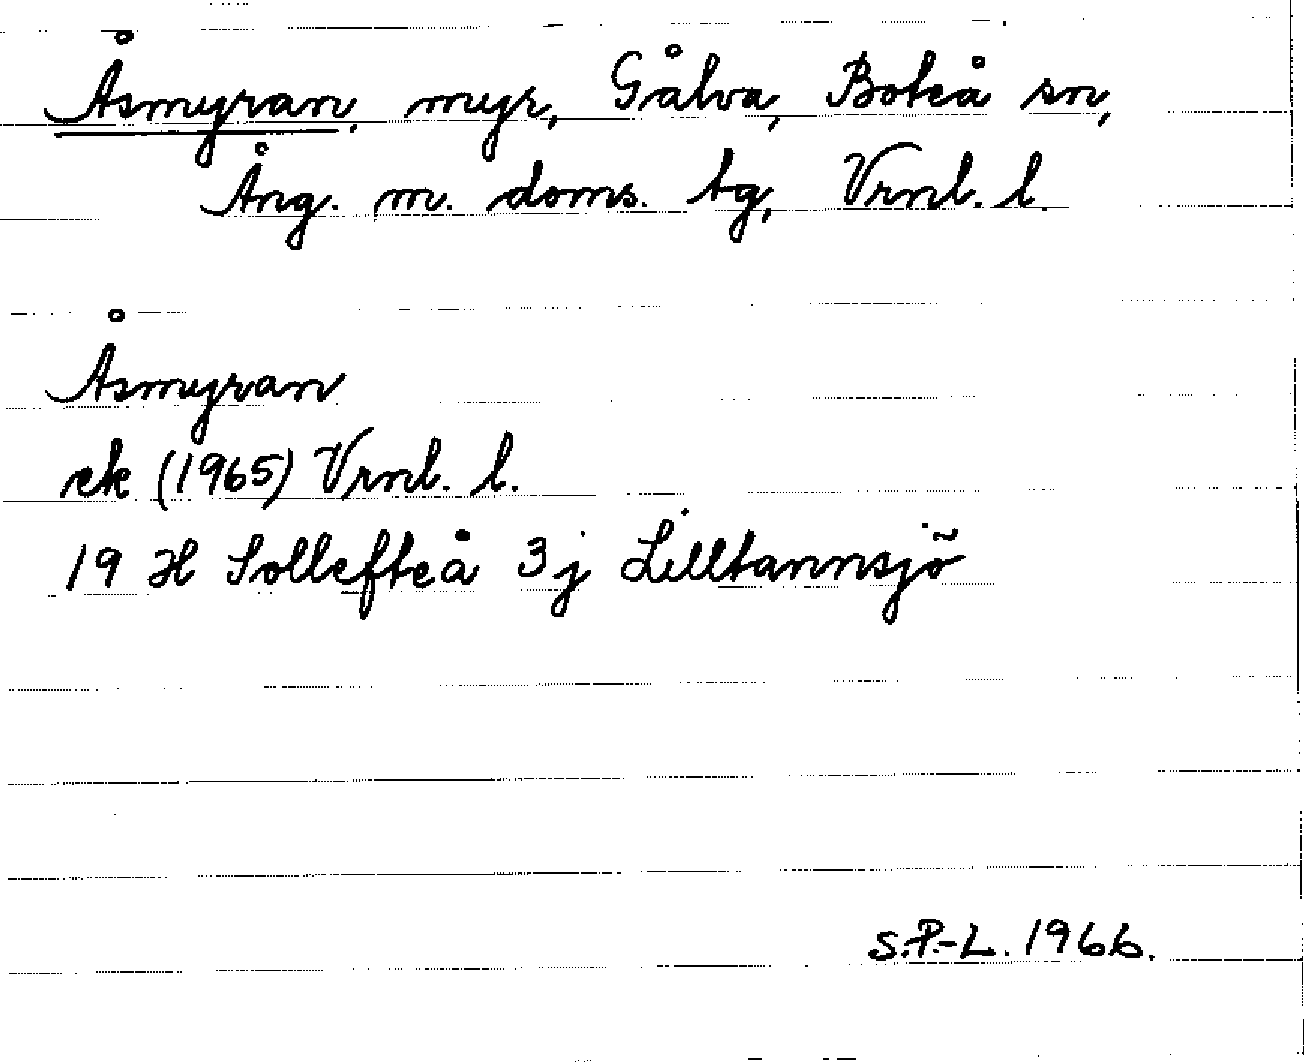 Åsmyran, myr, Gålva, Boteå sn,
Ång. m. doms. tg, Vrnl. l.
Åsmyran
ek (1965) Vrnl. l.
19 H Sollefteå 3j Lilltannsjö
S.P.-L. 1966.